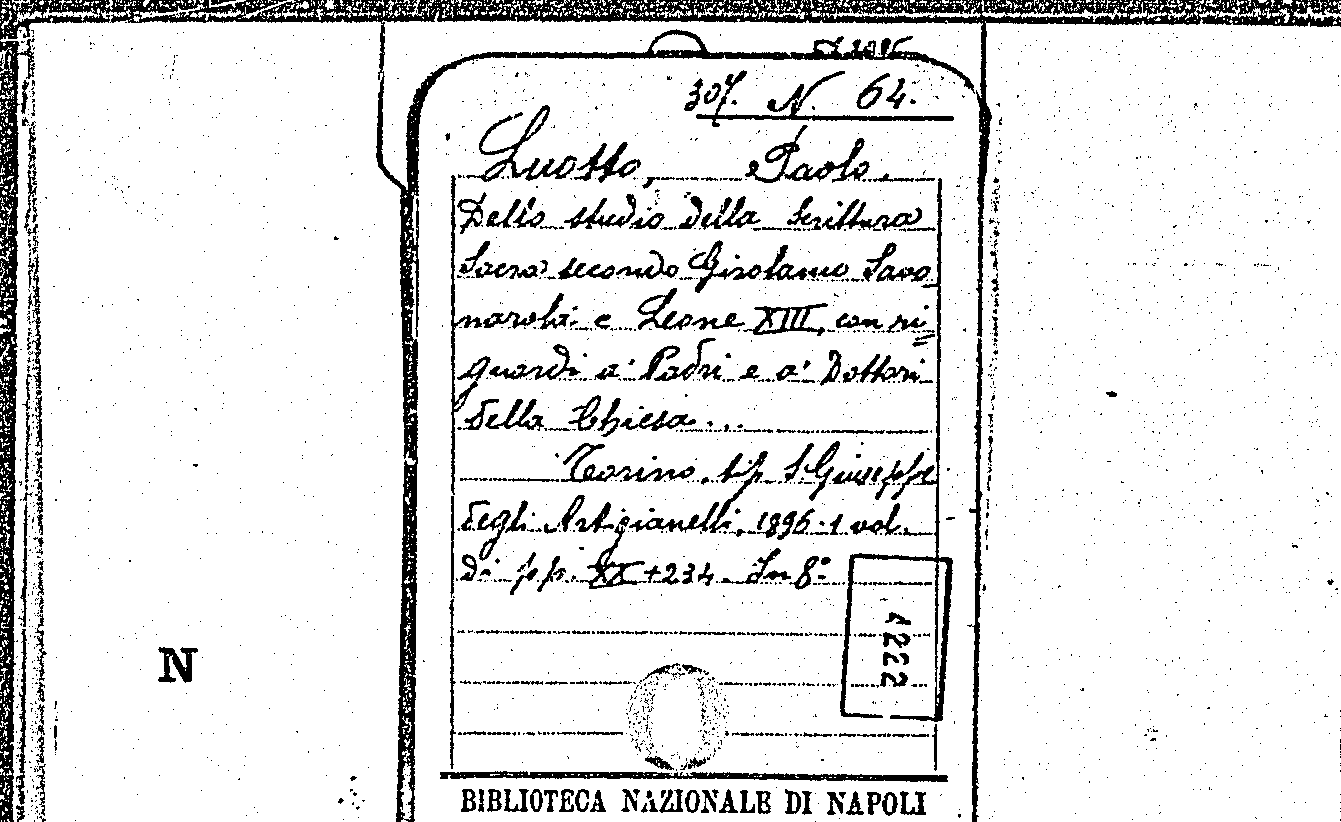 307. N. 64.
Luotto, Paolo.
Dello studio della Scrittura
Sacra secondo Girolamo Savo
narola e Leone XIII, con ri
guardi a' Padri e a' Dottori
della Chiesa...
Torino, tip. S. Giuseppe
degli Artigianelli, 1896. 1 vol.
di pp. XX+234. In 8º
4222
N
BIBLIOTECA NAZIONALE DI NAPOLI